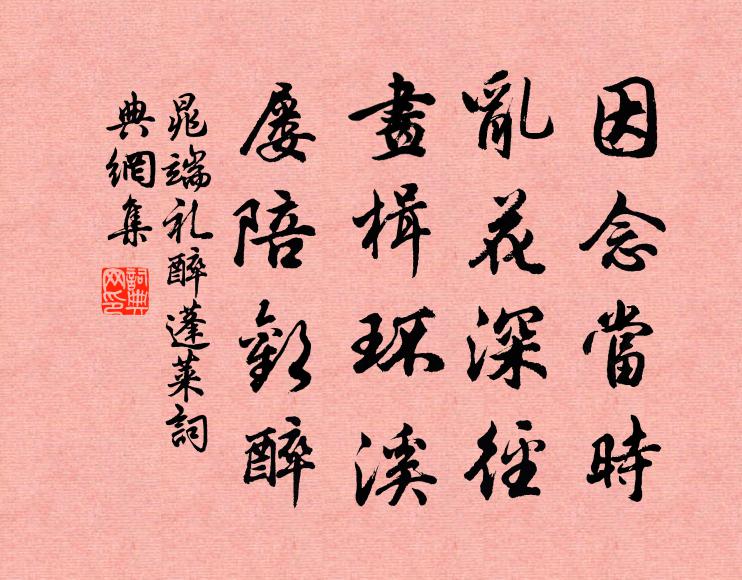 因念當時
亂花深徑
畫楫環溪
屢陪歡醉
晁端礼醉蓬萊詞
典網集
詞典網印